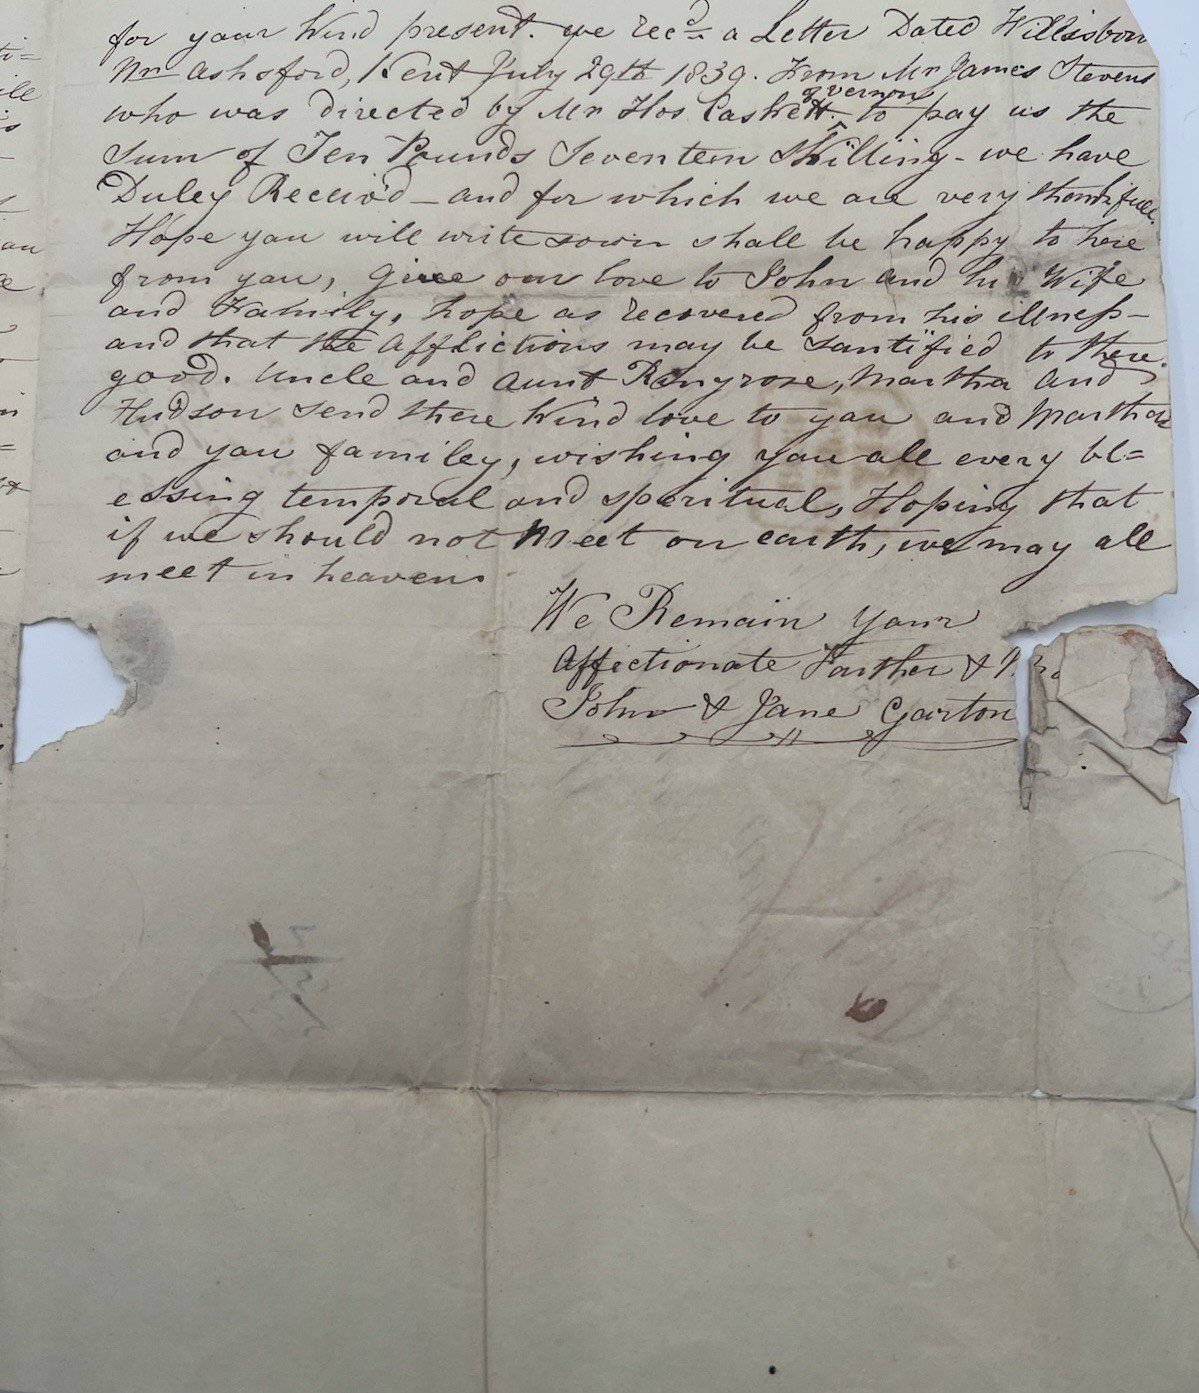 for your kind present. we recd a Letter Dated Willisborn
Nr Ashsford, Kent July 29th 1839. From Mr James Stevens
who was directed by Mr Hos Caskett of Vernon to pay us the
Sum of Ten Pounds Seventeen Shilling - we have
Duley Receiv'd - and for which we are very thankfull.
Hope you will write soon shall be happy to here
from you, Give our love to John and his Wife
and Family, hope as recovered from his illness -
and that the Afflictions may be Santified to there
good. Uncle and Aunt Ringrose, Martha and
Hudson send there kind love to you and Martha
and you familey, wishing you all every bl=
essing temporal and speritual, Hoping that
if we should not Meet on earth, we may all
meet in heaven.
We Remain your
Affectionate Farther &
John & Jane Garton